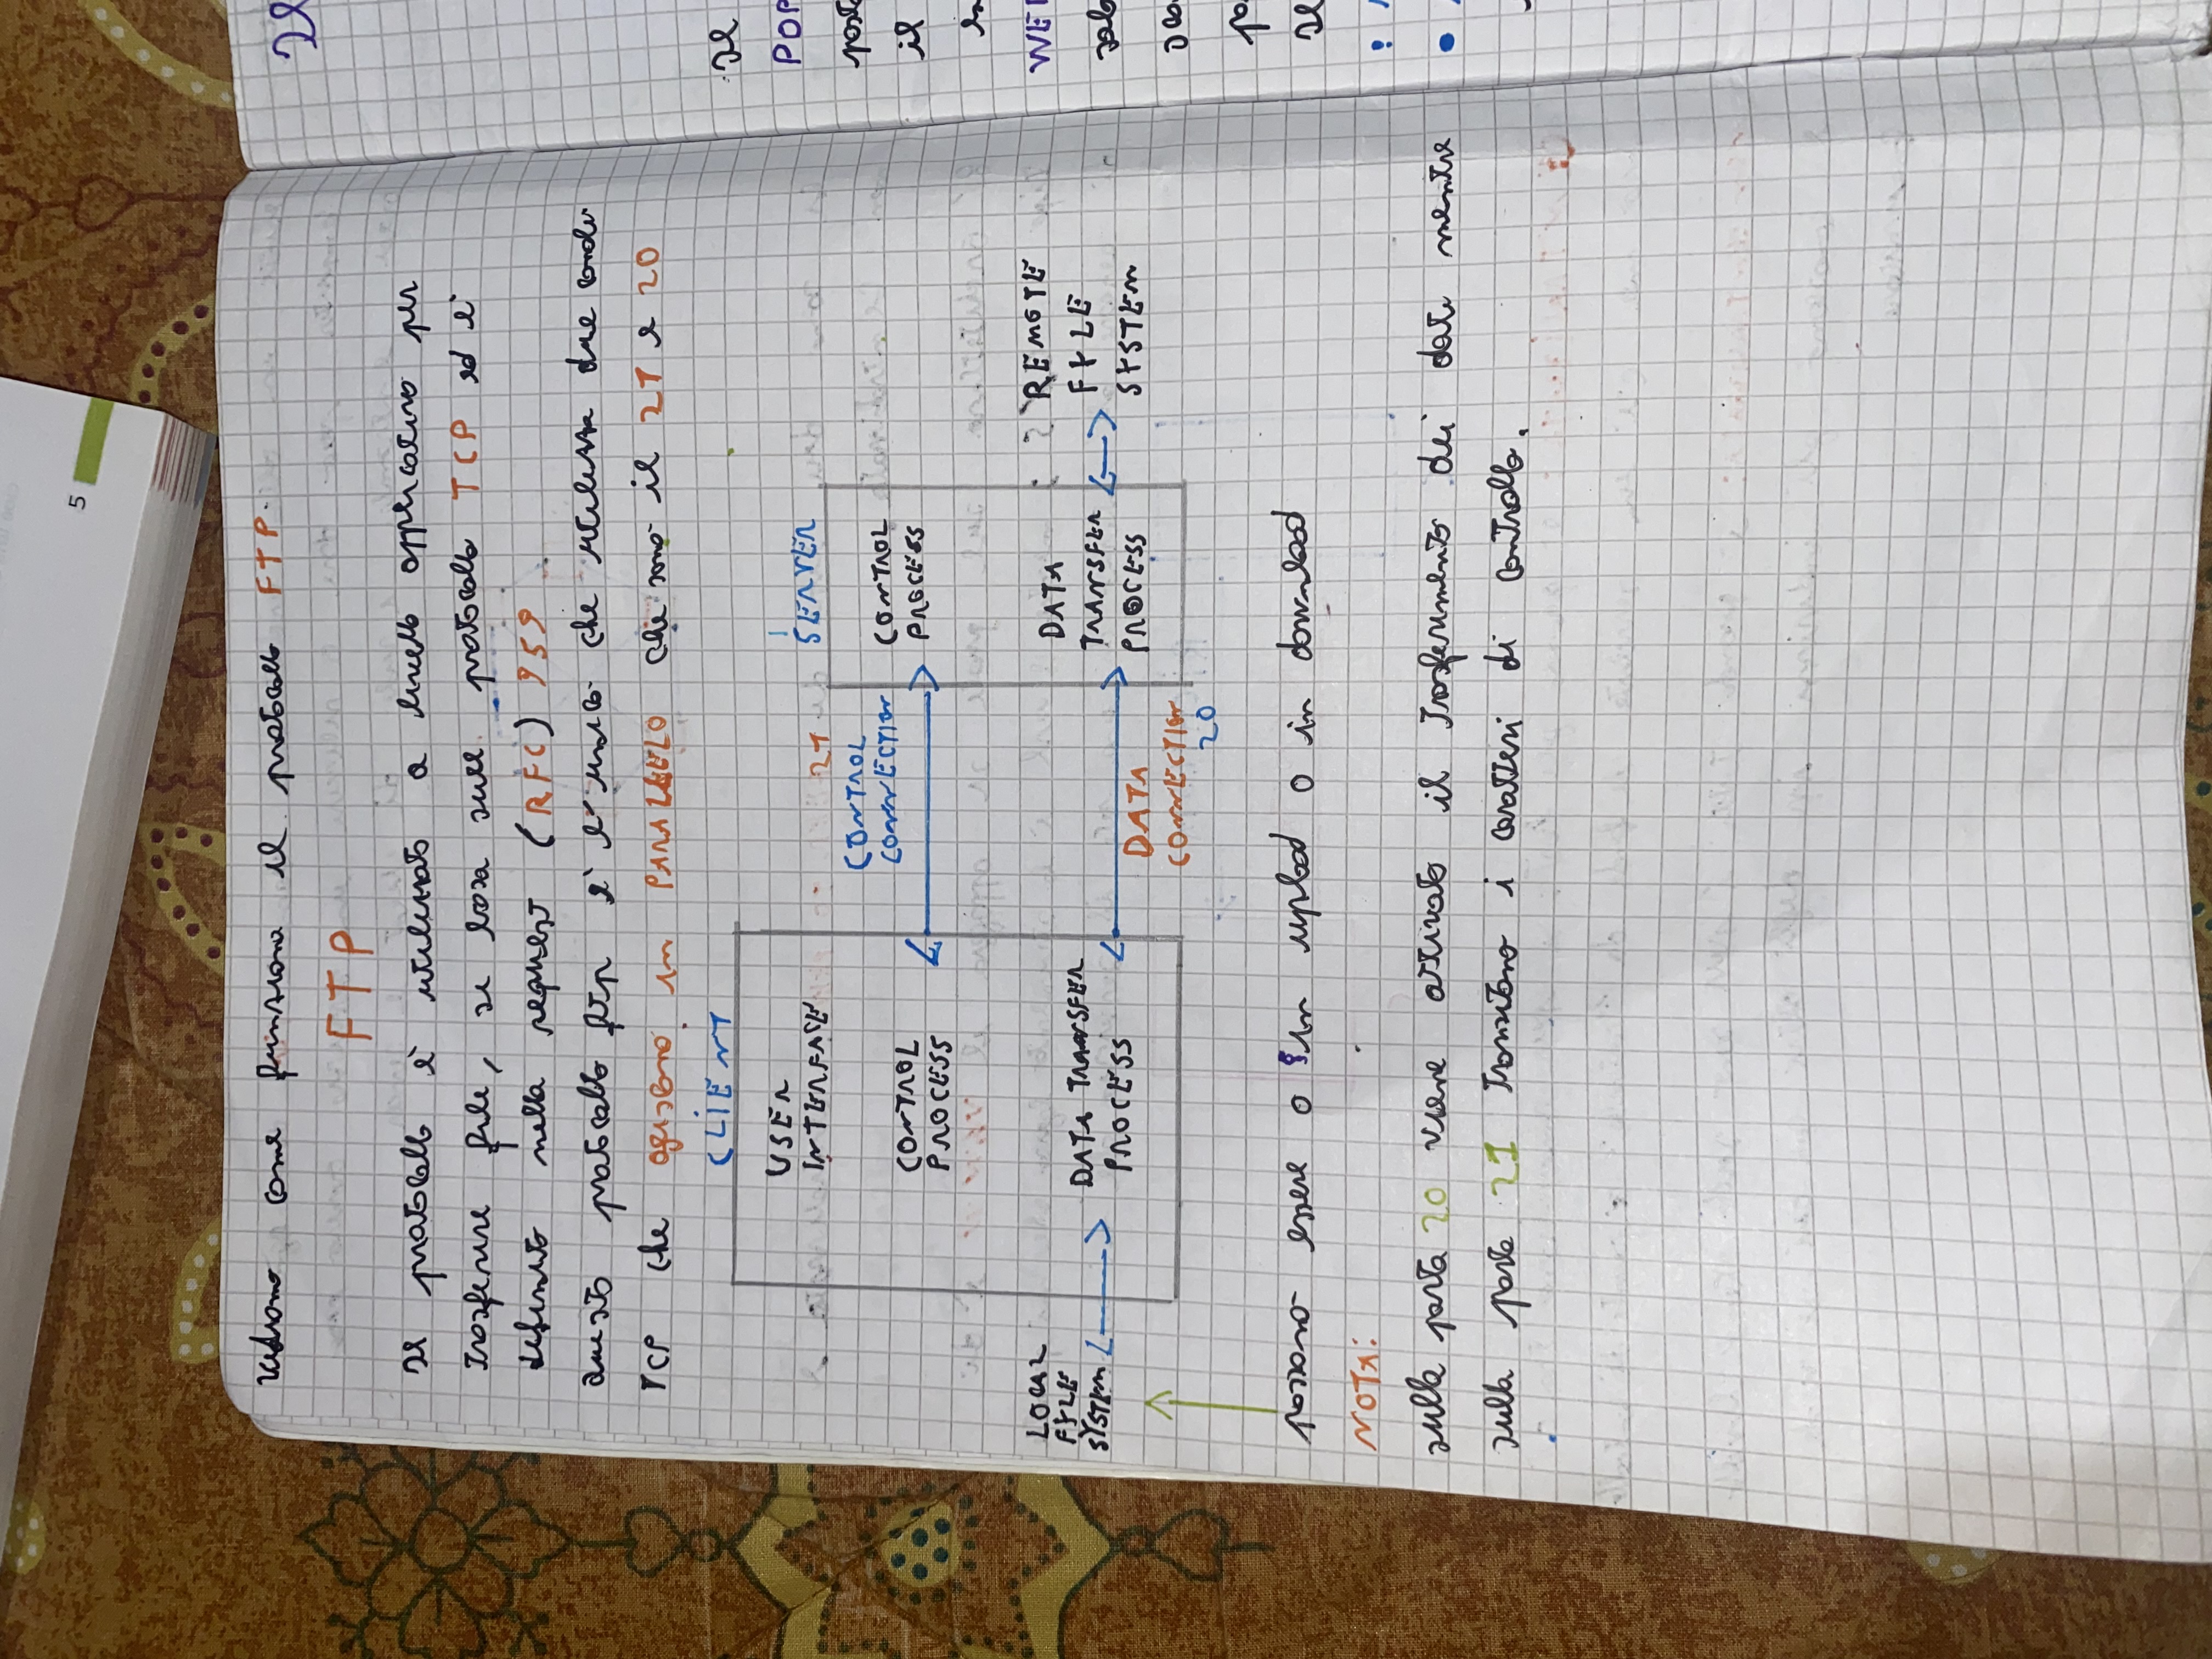 Vediamo come funziona il protocollo FTP.
FTP
Il protocollo è utilizzato a livello applicativo per
Trasferire file, si basa sul protocollo TCP ed è
definito nella request (RFC) 959
Questo protocollo ftp è l'unico che utilizza due canali
TCP che agiscono in PARALLELO che sono il 21 e 20
CLIENT
SERVER
USER
INTERFASE
CONTROL
CONNECTION
21
CONTROL
PROCESS
CONTROL
PROCESS
LOCAL
FILE
SYSTEM
DATA TRANSFER
PROCESS
DATA
CONNECTION
20
DATA
TRANSFER
PROCESS
REMOTE
FILE
SYSTEM
possono essere o in upload o in download
NOTA:
sulla porta 20 viene attivato il Trasferimento dei dati mentre
sulla porta 21 Transitano i caratteri di controllo.
5
Il
Il
POP
il
WE
Il